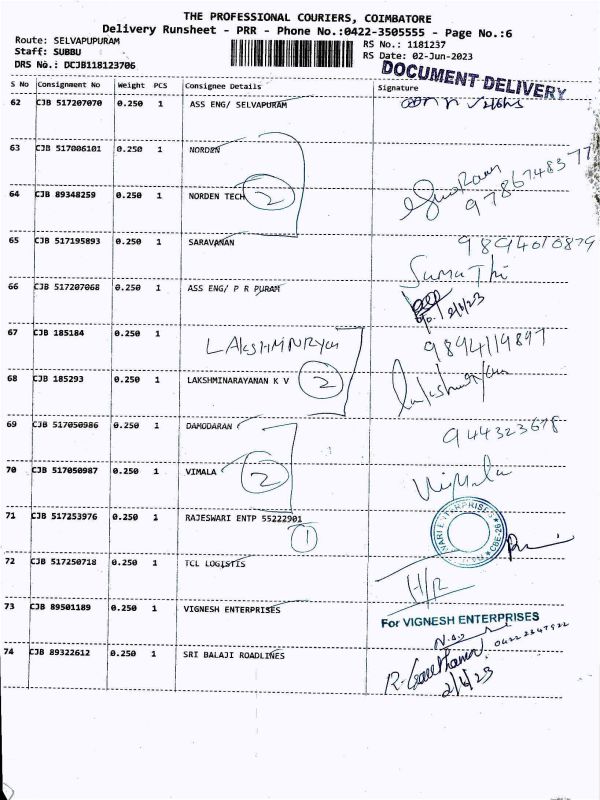 THE PROFESSIONAL COURIERS, COIMBATORE
Delivery Runsheet - PRR - Phone No.:0422-3505555 - Page No.:6
Route: SELVAPUPURAM
Staff: SUBBU
DRS No.: DCJB118123706
RS No.: 1181237
RS Date: 02-Jun-2023
DOCUMENT DELIVERY
S No Consignment No Weight PCS Consignee Details Signature
62 CJB 517207070 0.250 1 ASS ENG/ SELVAPURAM
63 CJB 517006101 0.250 1 NORDEN
64 CJB 89348259 0.250 1 NORDEN TECH 2
9786748377
65 CJB 517195893 0.250 1 SARAVANAN 9894010879
Sumathi
66 CJB 517207068 0.250 1 ASS ENG/ P R PURAM
67 CJB 185184 0.250 1 LAKSHMINRYAN 9894119897
68 CJB 185293 0.250 1 LAKSHMINARAYANAN K V 2
69 CJB 517050986 0.250 1 DAMODARAN 944323678
70 CJB 517050987 0.250 1 VIMALA 2 Vimala
71 CJB 517253976 0.250 1 RAJESWARI ENTP 55222901 1
72 CJB 517250718 0.250 1 TCL LOGISTIS H/R
73 CJB 89501189 0.250 1 VIGNESH ENTERPRISES For VIGNESH ENTERPRISES
74 CJB 89322612 0.250 1 SRI BALAJI ROADLINES
2/6/23